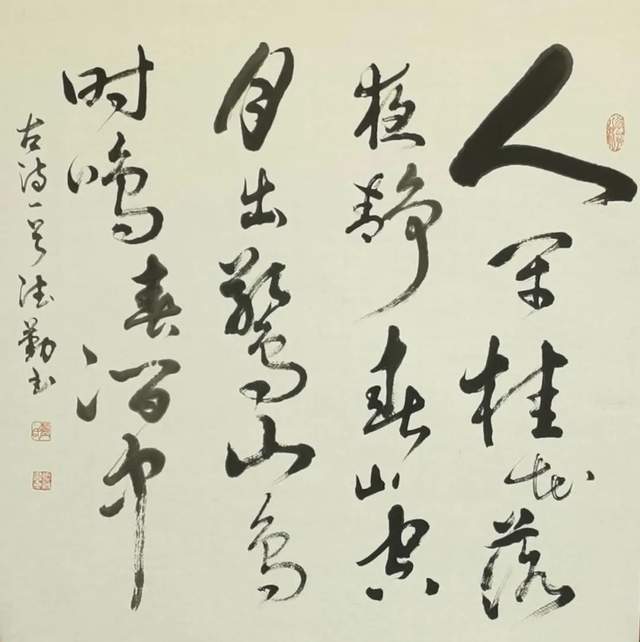 人闲桂花落
夜静春山空
月出惊山鸟
时鸣春涧中
古诗一首 德勤书